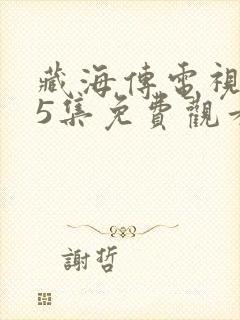 藏海傳電視
5集免費觀看
謝哲